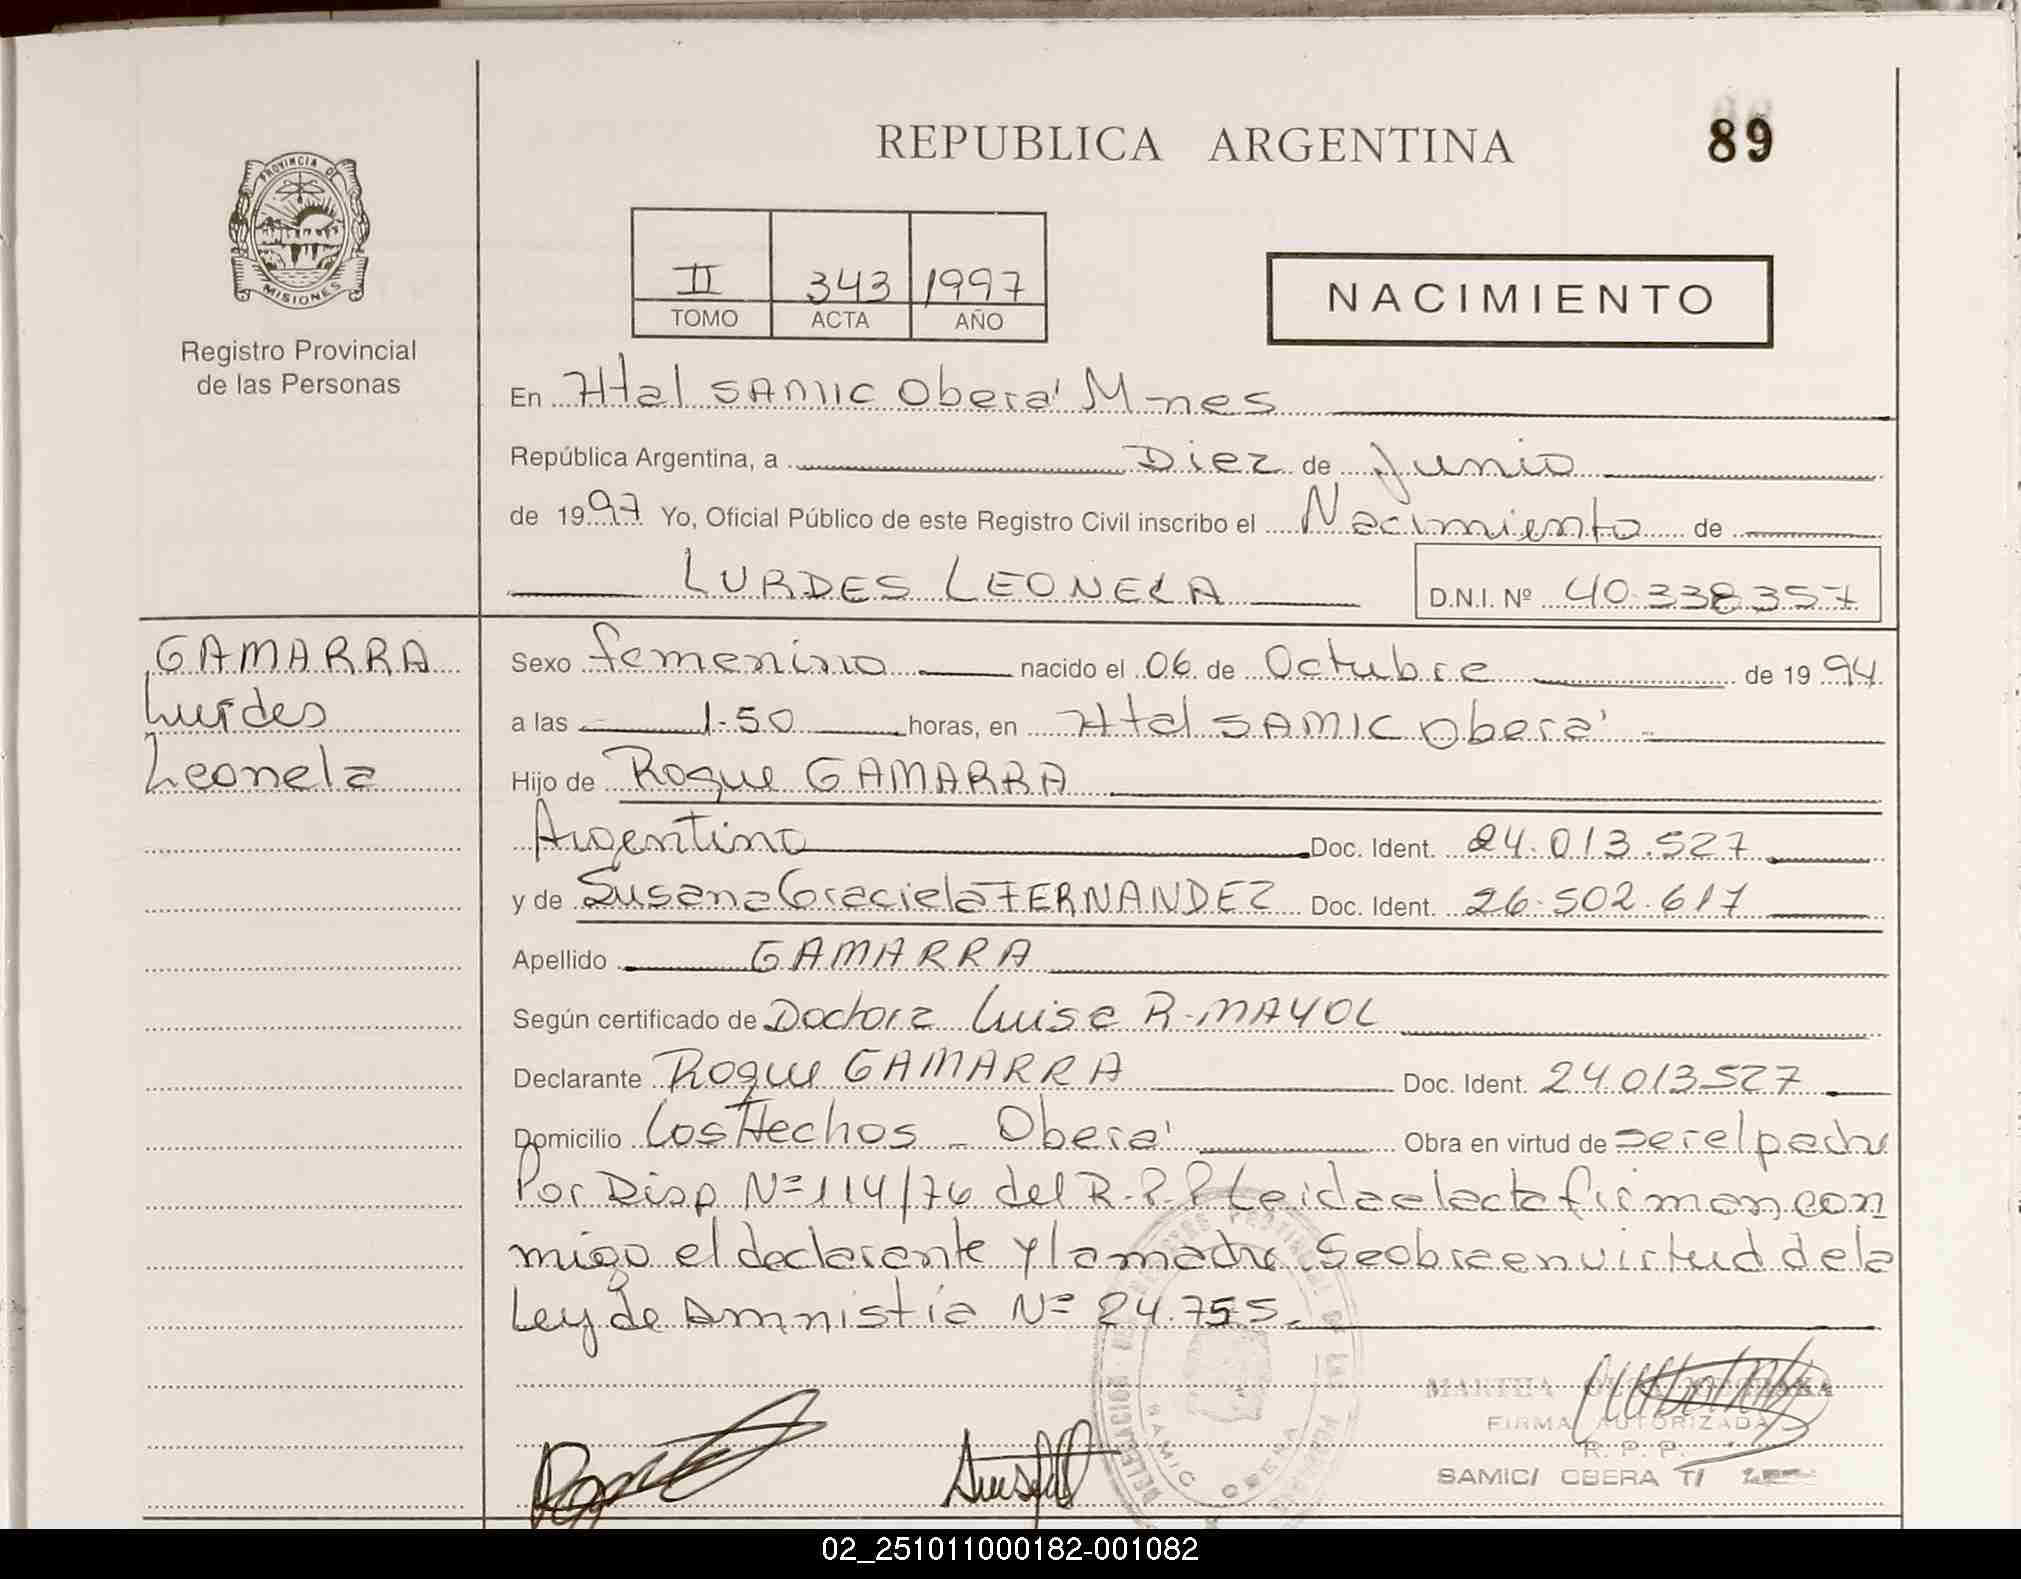 REPUBLICA ARGENTINA
89
PROVINCIA DE
MISIONES
Registro Provincial
de las Personas
II 343 1997
TOMO ACTA AÑO
NACIMIENTO
En Htal SAMIC Oberá M-nes
República Argentina, a Diez de Junio
de 1997 Yo, Oficial Público de este Registro Civil inscribo el Nacimiento de
LURDES LEONELA D.N.I. Nº 40.338.357
GAMARRA
Lurdes
Leonela
Sexo femenino nacido el 06 de Octubre de 1994
a las 1-50 horas, en Htal SAMIC Oberá
Hijo de Roque GAMARRA
Argentino Doc. Ident. 24.013.527
y de Susana Graciela FERNANDEZ Doc. Ident. 26.502.617
Apellido GAMARRA
Según certificado de Doctora Luisa R. MAYOL
Declarante Roque GAMARRA Doc. Ident. 24.013.527
Domicilio Los Hechos - Oberá Obra en virtud de ser el padre
Por Disp Nº 114/76 del R.P.P Leida el acta firman con
migo el declarante y la madre. Se obra en virtud de la
Ley de Amnistía Nº 24.755.
MARTHA
FIRMA AUTORIZADA
R. P. P.
SAMIC/ OBERA
DELEGACION
SAMIC OBERA
02_251011000182-001082